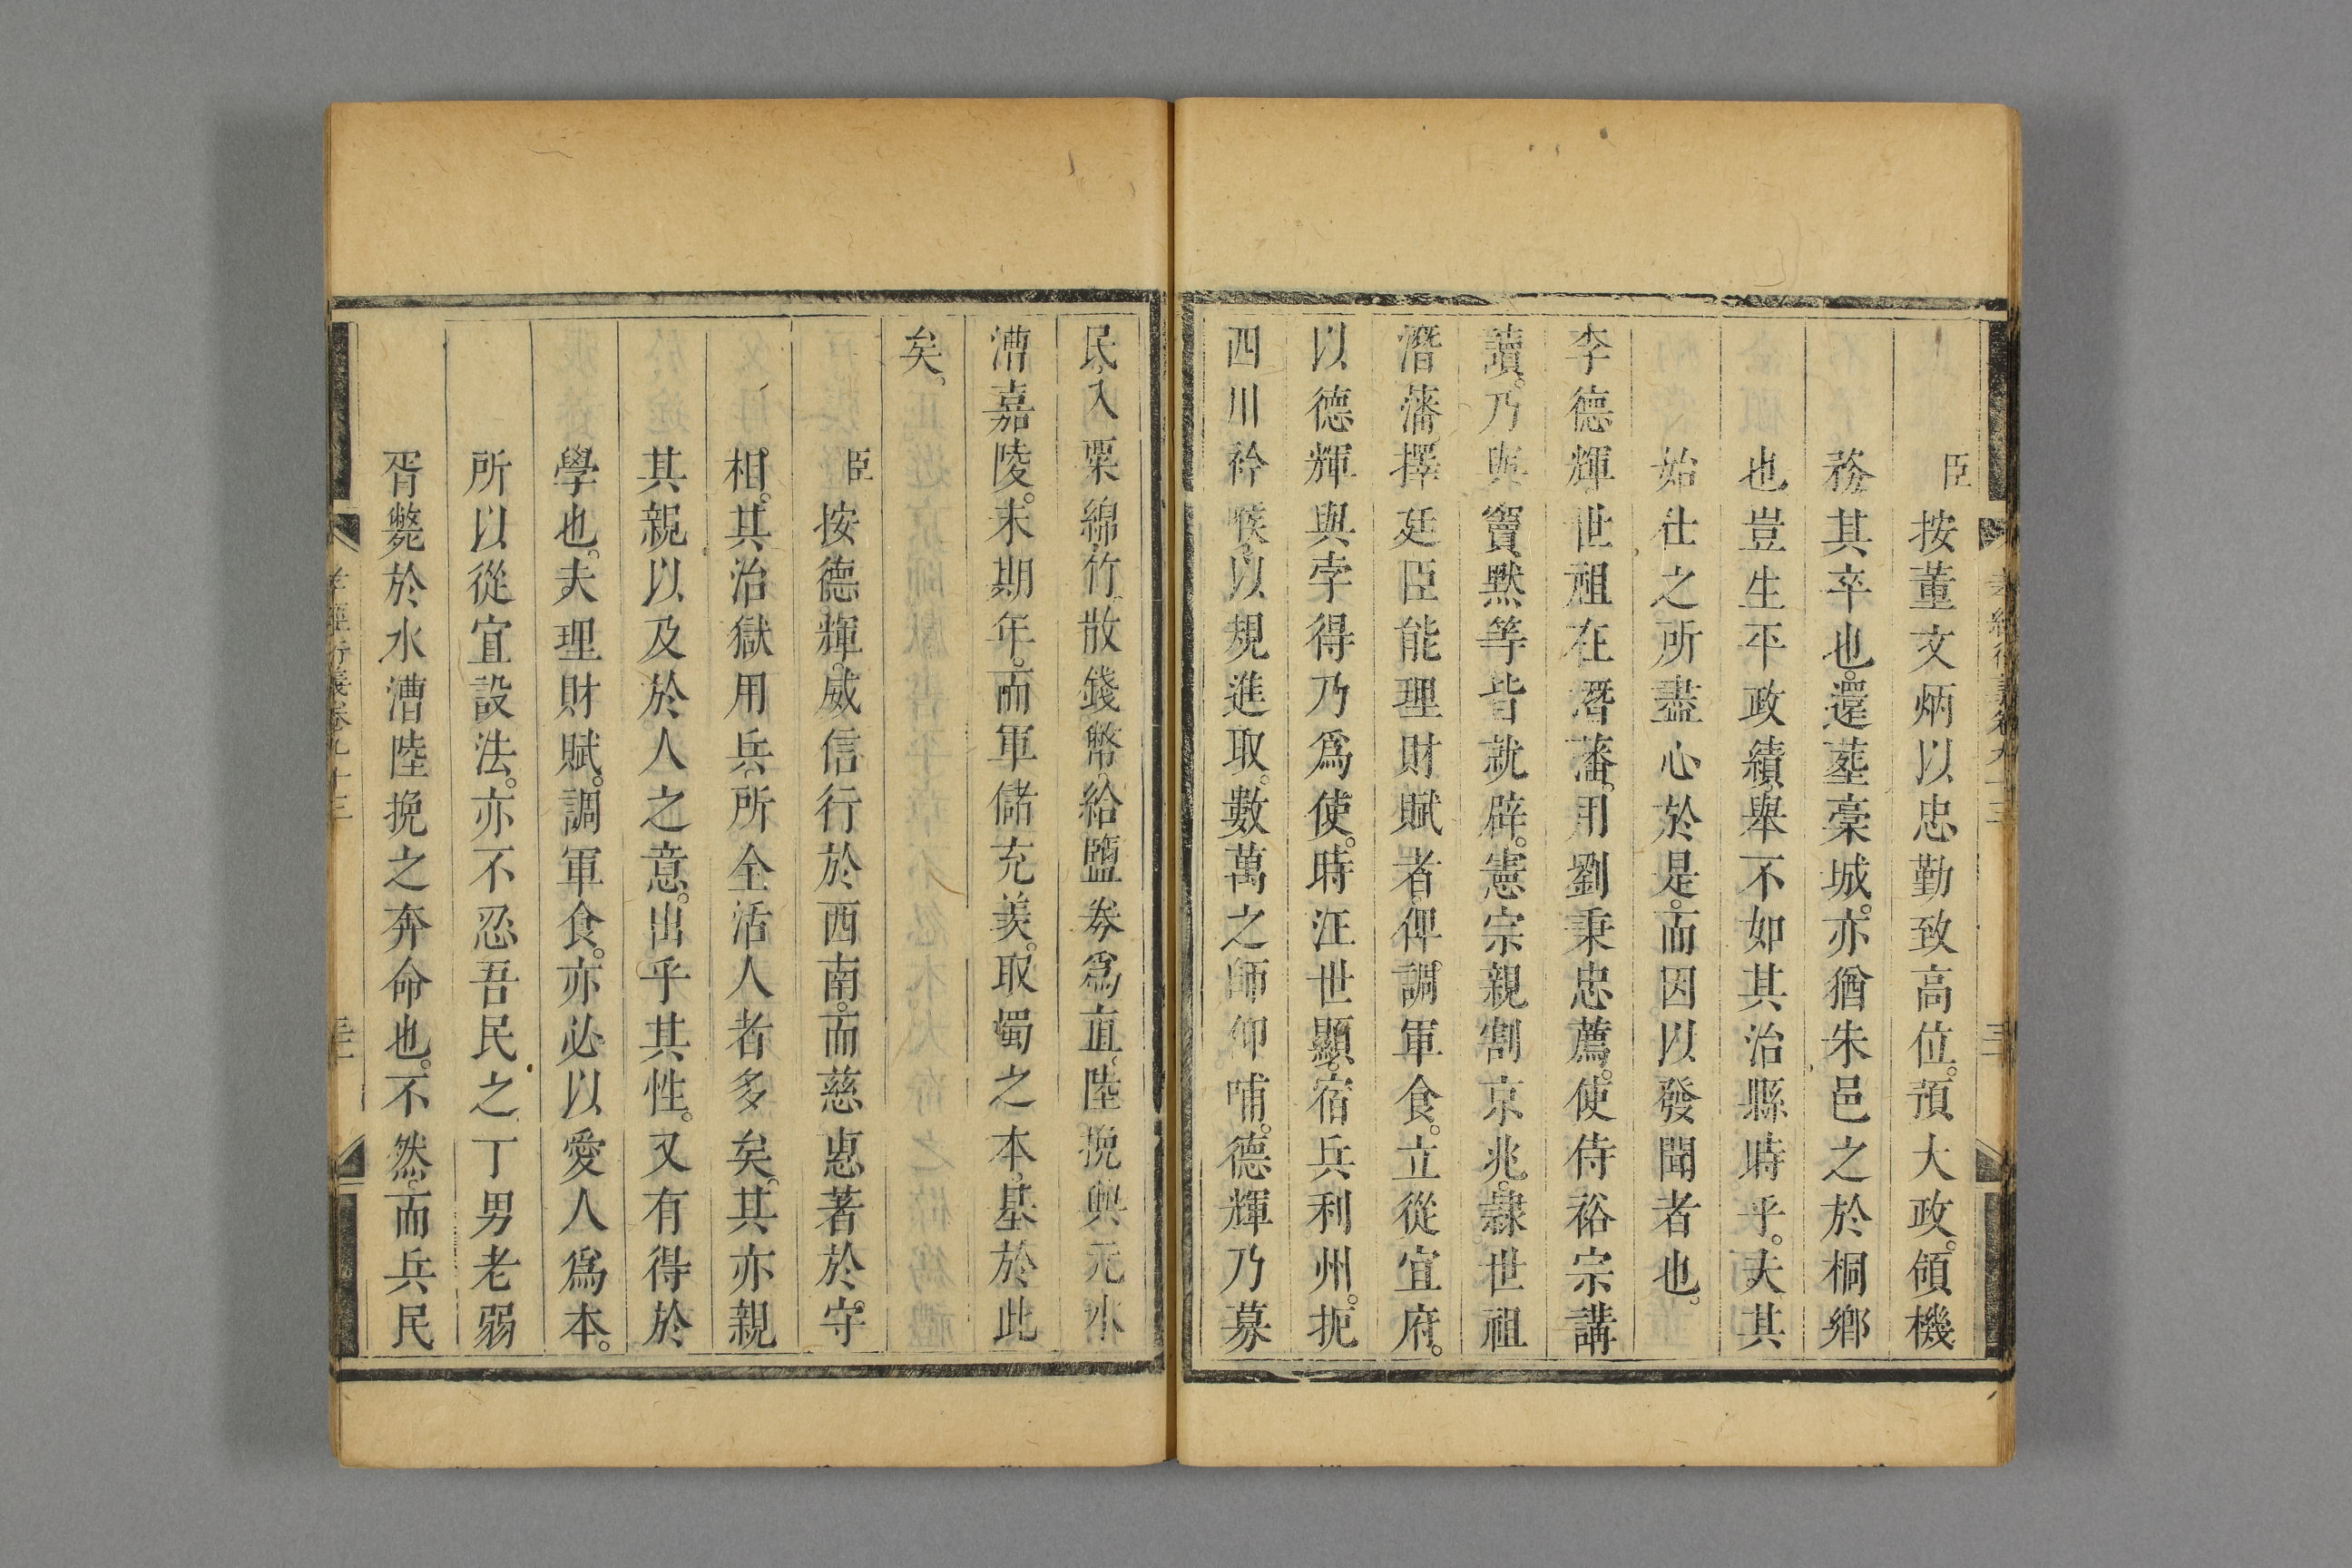 臣按董文炳以忠勤致高位。預大政。領機
務其卒也。還葬藁城。亦猶朱邑之於桐鄉
也豈生平政績。舉不如其治縣時乎。夫其
始仕之所盡心於是。而因以發聞者也。
李德輝世祖在潛藩。用劉秉忠薦。使侍裕宗講
讀。乃與竇默等皆就辟。憲宗親割京兆。隸世祖
潛藩擇廷臣能理財賦者。俾調軍食。立從宜府。
以德輝與孛得乃為使。時汪世顯。宿兵利州。扼
四川衿喉。以規進取。數萬之師仰哺。德輝乃募
民入粟綿竹散錢幣。給鹽券為直。陸挽興元水
漕嘉陵。未期年。而軍儲充羨。取蜀之本。基於此
矣。
臣按德輝。威信行於西南。而慈惠著於。守
相。其治獄用兵。所全活人者多矣。其亦親
其親以及於人之意。出乎其性。又有得於
學也。夫理財賦。調軍食。亦必以愛人為本。
所以從宜設法。亦不忍吾民之丁男老弱
胥斃於水漕陸挽之奔命也。不然。而兵民
孝經衍義卷九十三